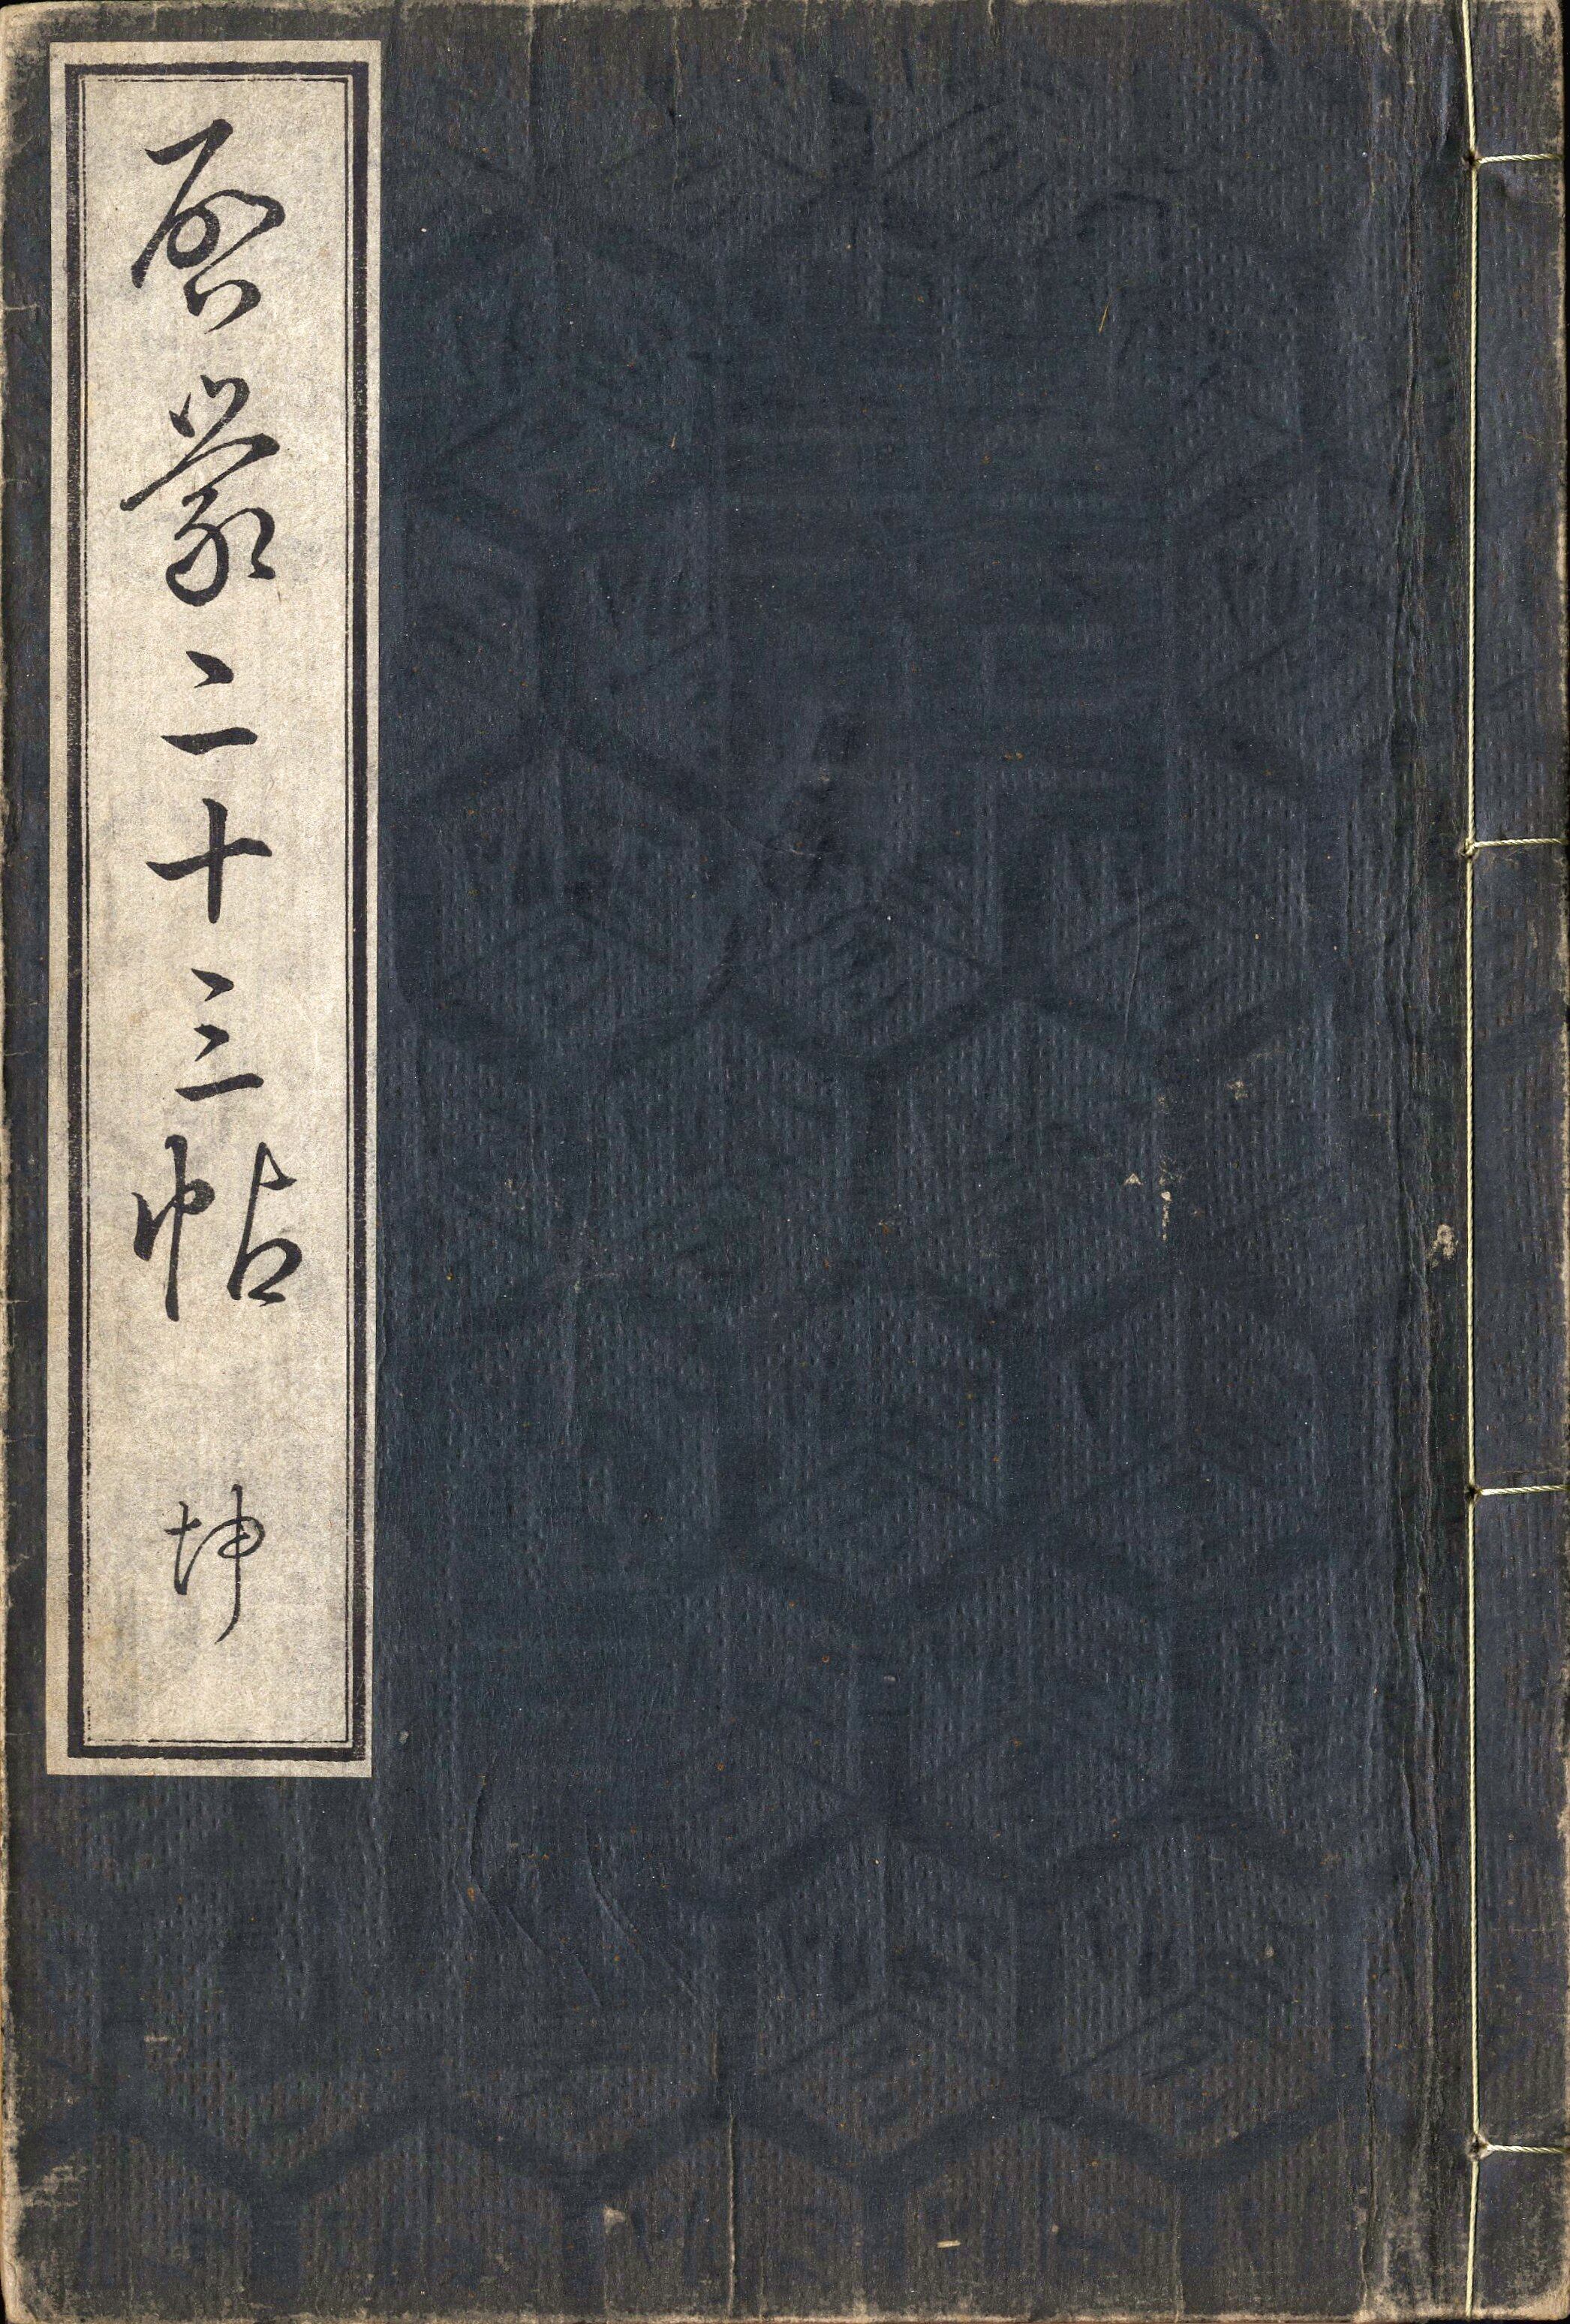 啓蒙二十三帖 坤